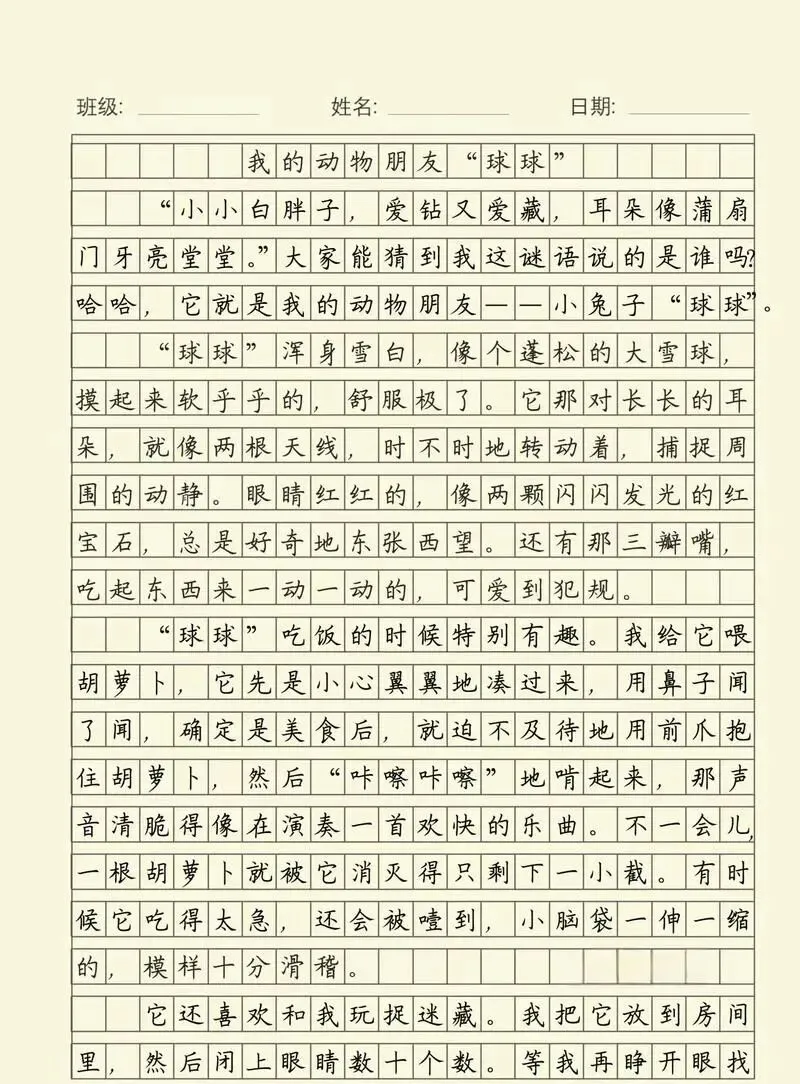 班级: 姓名: 日期:
我的动物朋友“球球”
“小小白胖子，爱钻又爱藏，耳朵像蒲扇
门牙亮堂堂。”大家能猜到我这谜语说的是谁吗?
哈哈，它就是我的动物朋友——小兔子“球球”。
“球球”浑身雪白，像个蓬松的大雪球，
摸起来软乎乎的，舒服极了。它那对长长的耳
朵，就像两根天线，时不时地转动着，捕捉周
围的动静。眼睛红红的，像两颗闪闪发光的红
宝石，总是好奇地东张西望。还有那三瓣嘴，
吃起东西来一动一动的，可爱到犯规。
“球球”吃饭的时候特别有趣。我给它喂
胡萝卜，它先是小心翼翼地凑过来，用鼻子闻
了闻，确定是美食后，就迫不及待地用前爪抱
住胡萝卜，然后“咔嚓咔嚓”地啃起来，那声
音清脆得像在演奏一首欢快的乐曲。不一会儿，
一根胡萝卜就被它消灭得只剩下一小截。有时
候它吃得太急，还会被噎到，小脑袋一伸一缩
的，模样十分滑稽。
它还喜欢和我玩捉迷藏。我把它放到房间
里，然后闭上眼睛数十个数。等我再睁开眼找